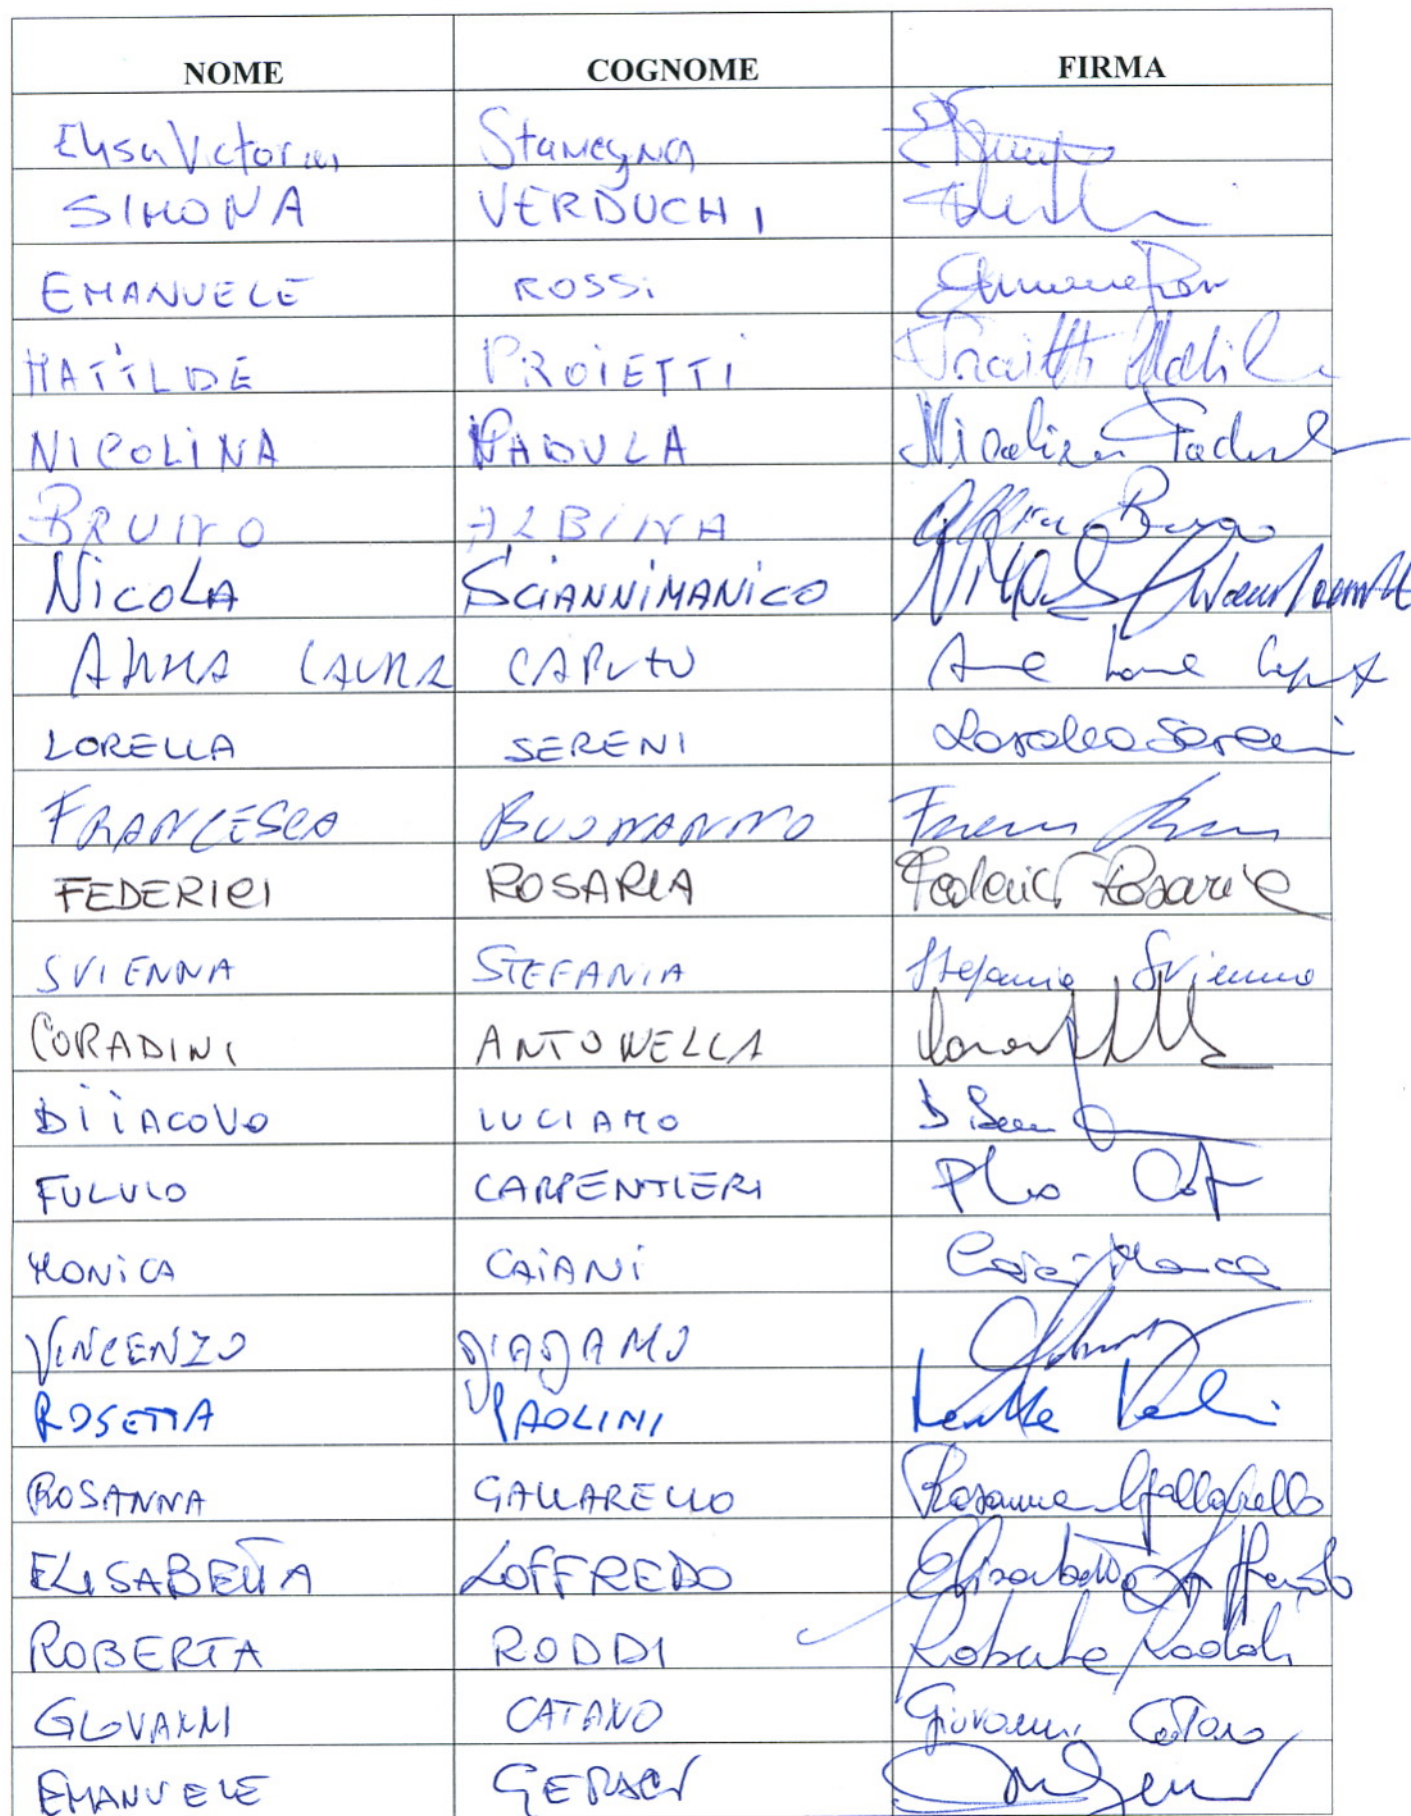 NOME COGNOME FIRMA
Elisa Victoria Stamegna
SIMONA VERDUCHI
EMANUELE ROSSi
MATiLDE PROiETTi
NICOLINA PADULA Nicolina Padula
BRUNO ALBINA Albina Bruno
NicoLA SCiANNiMANiCO
ANNA LAURA CAPUTO
LORELLA SERENI Lorella Sereni
FRANCESCA BUONANNO
FEDERICI ROSARIA Federici Rosaria
SVIENNA STEFANIA Stefania Svienna
CORADINI ANTONELLA
Di iACOVO LUCIANO
FULVIO CARPENTIERI
MONiCA CAiANi Caiani Monica
VINCENZO DIADAMO
ROSETTA PAOLINI
ROSANNA GALLARELLO Rosanna Gallarello
ELISABETTA LOFFREDO Elisabetta Loffredo
ROBERTA RODDI Roberta Roddi
GIOVANNI CATANO Giovanni Catano
EMANUELE GERACI